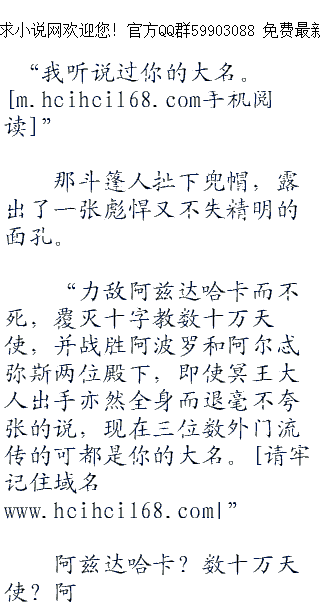 求小说网欢迎您! 官方QQ群59903088 免费最新
“我听说过你的大名。
[m.hcihci168.com手机阅
读]”
那斗篷人扯下兜帽，露
出了一张彪悍又不失精明的
面孔。
“力敌阿兹达哈卡而不
死，覆灭十字教数十万天
使，并战胜阿波罗和阿尔忒
弥斯两位殿下，即使冥王大
人出手亦然全身而退毫不夸
张的说，现在三位数外门流
传的可都是你的大名。[请牢
记住域名
www.hcihci168.com|”
阿兹达哈卡？数十万天
使？阿